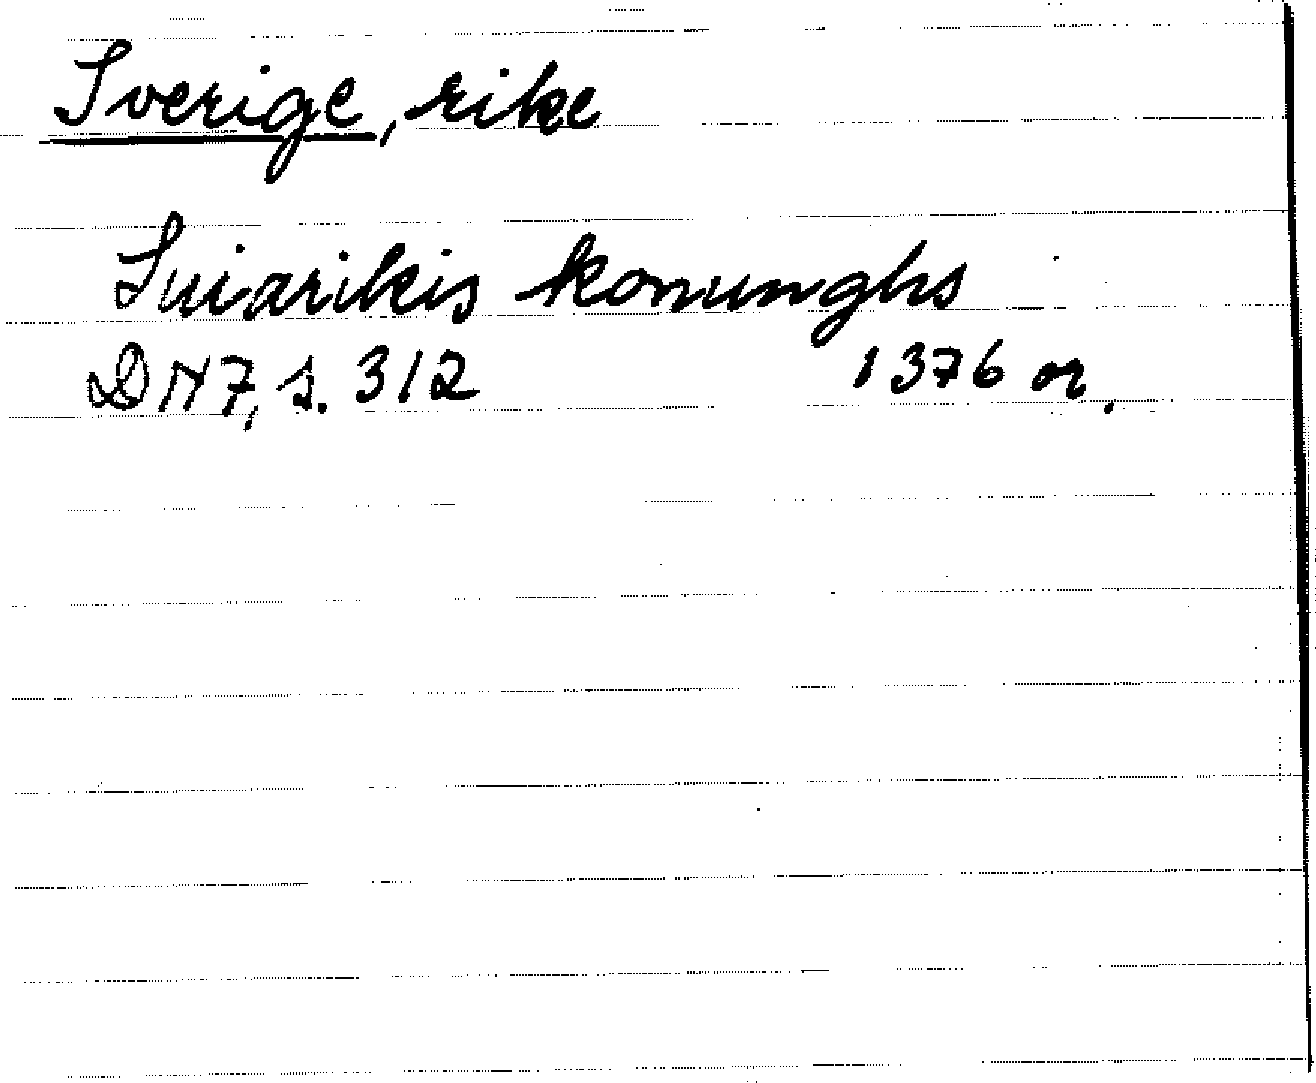 Sverige, rike
Suiarikis konunghs
DN 7, s. 312 1376 or.